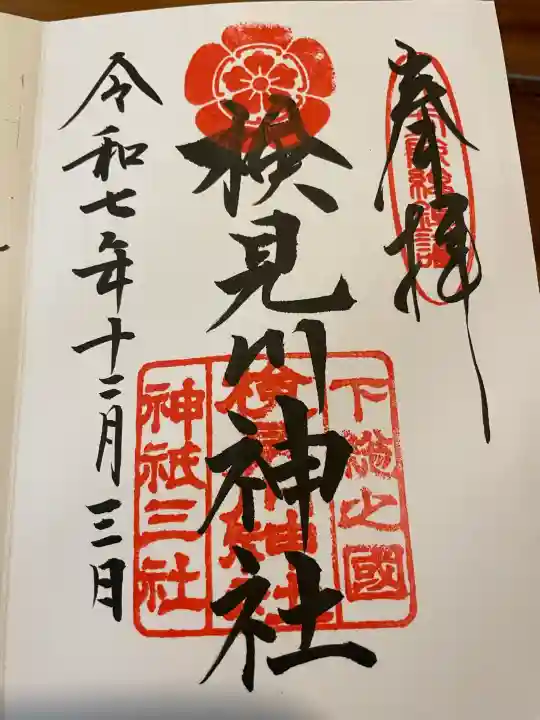 奉拝
検見川神社
下総之國
検見川神社
神祇三社
令和七年十二月三日